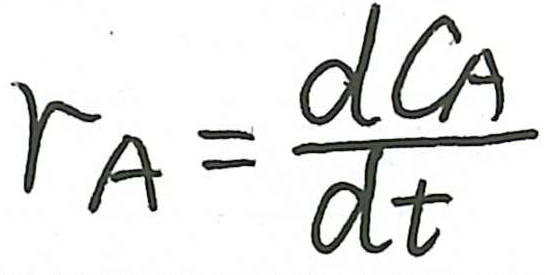 r_A = \frac{dC_A}{dt}